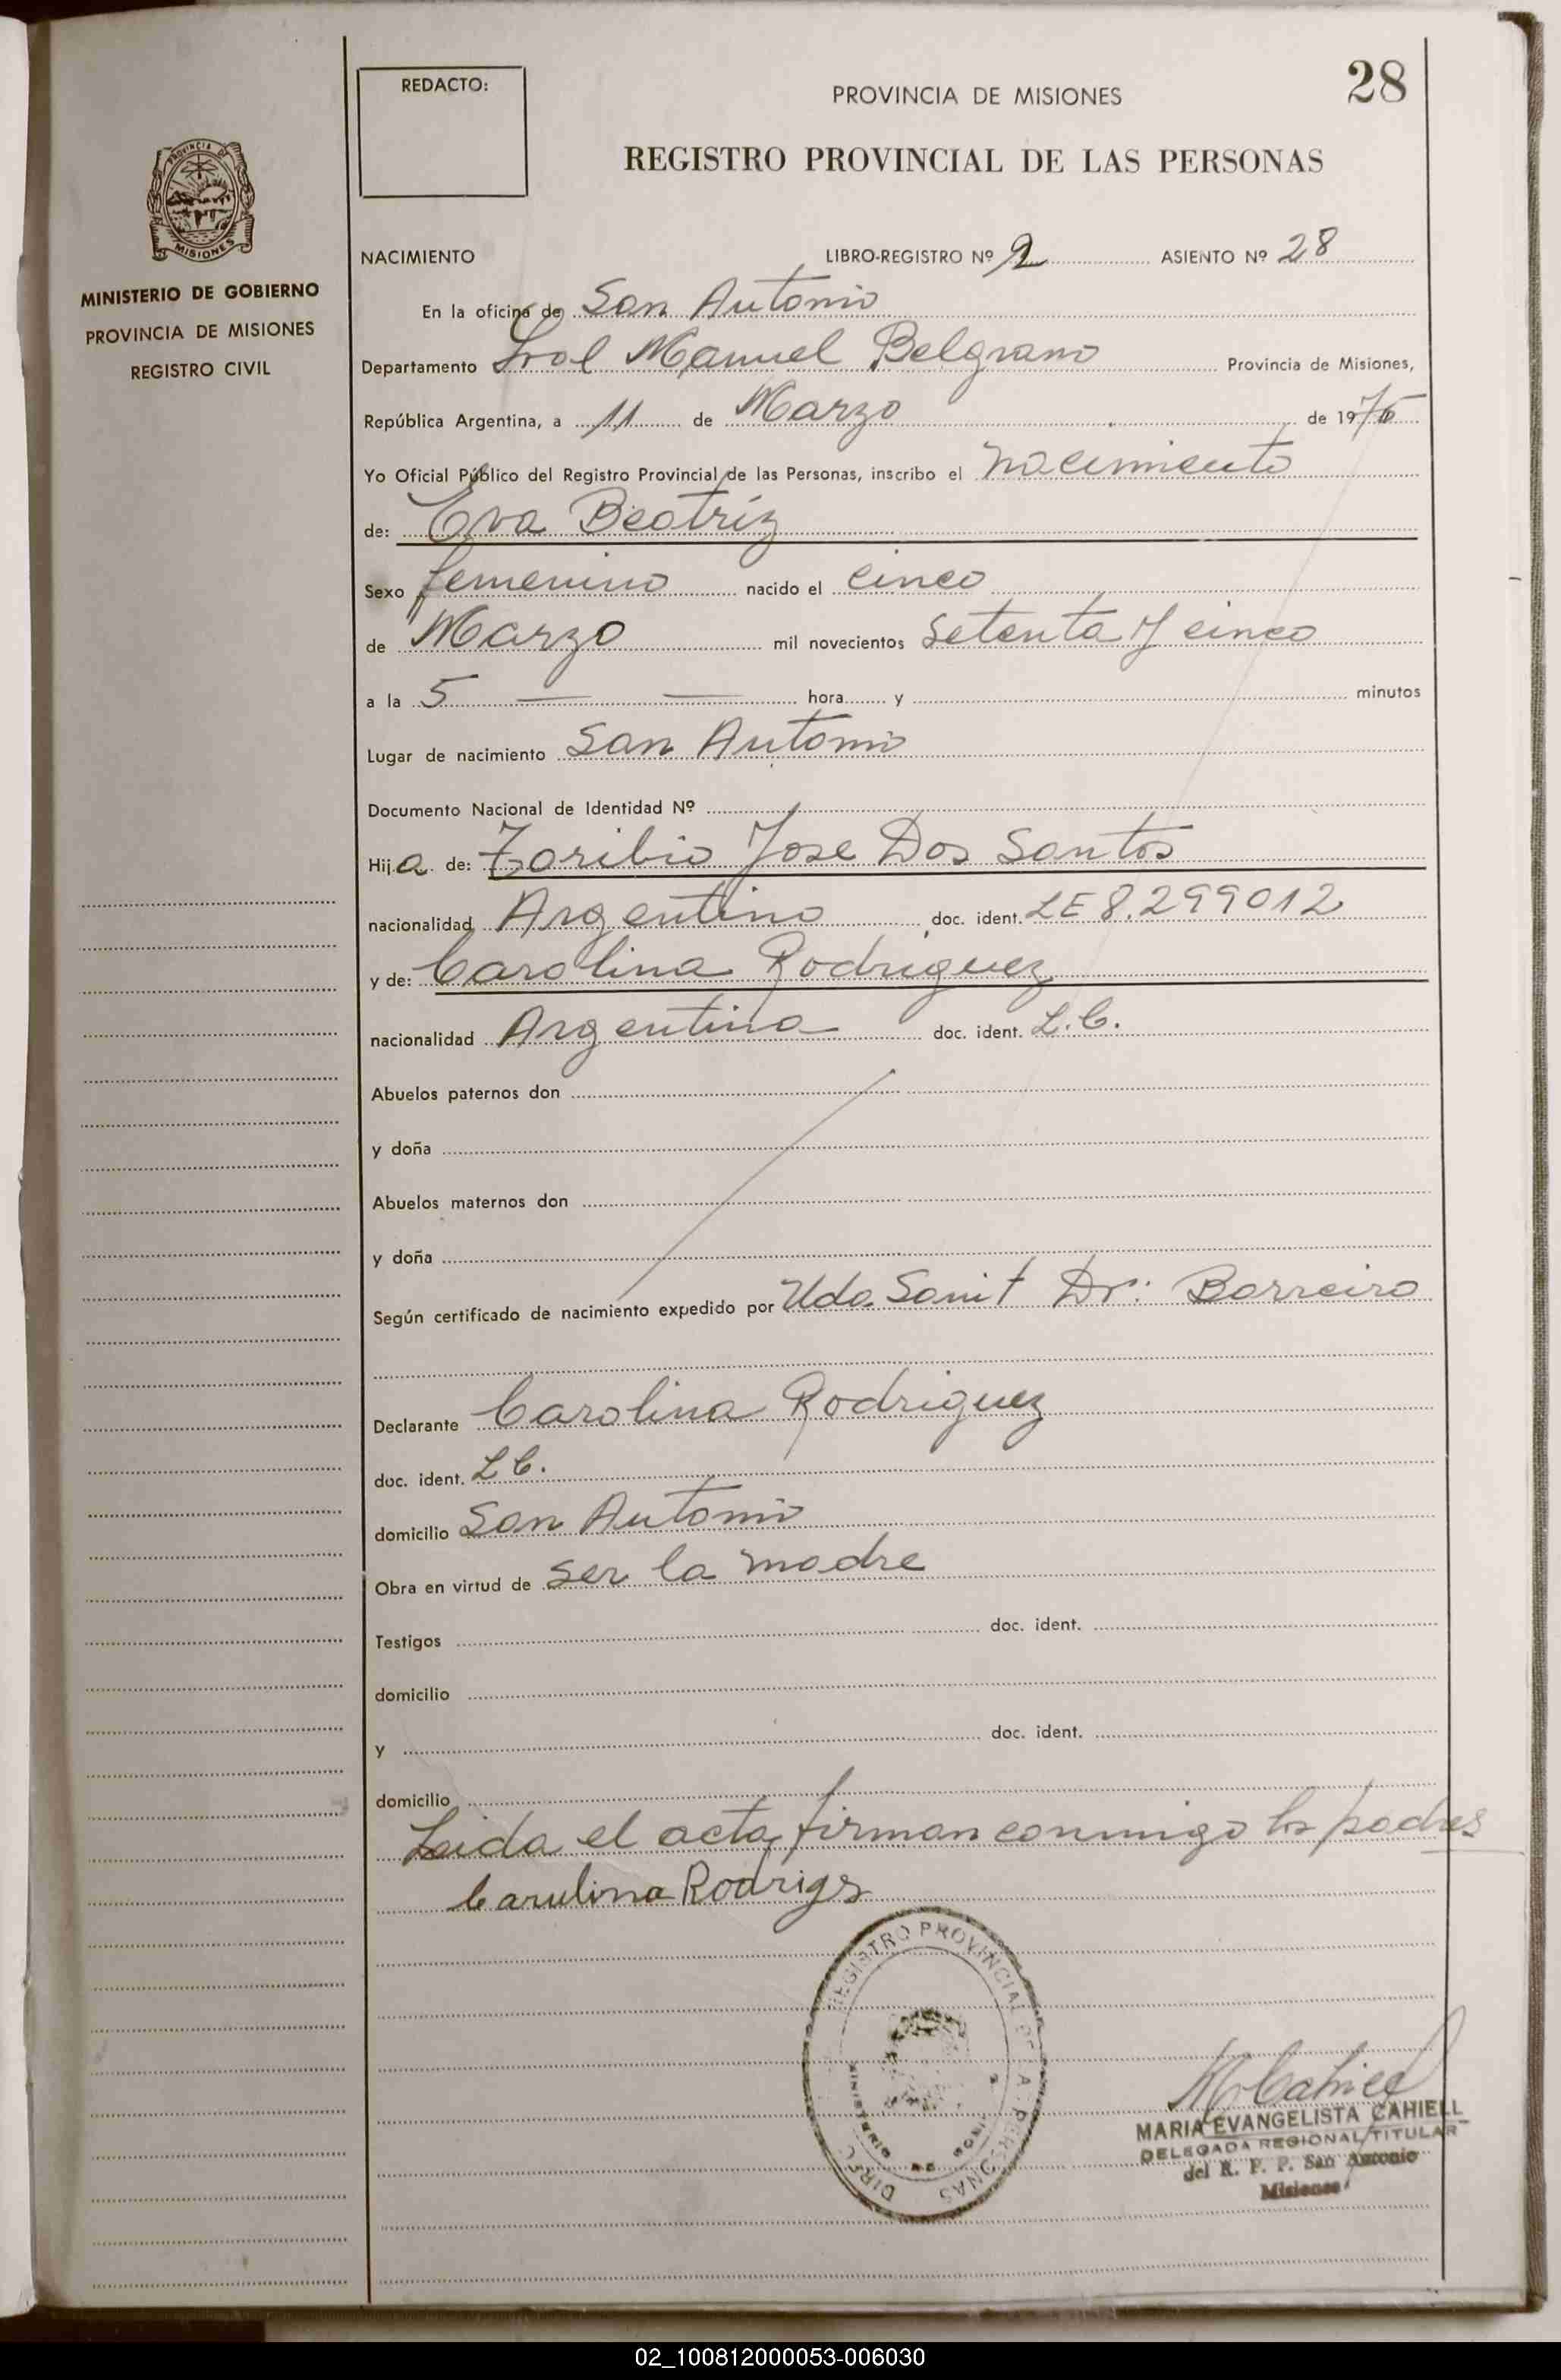 28
REDACTO:
PROVINCIA DE MISIONES
REGISTRO PROVINCIAL DE LAS PERSONAS
PROVINCIA DE
MISIONES
MINISTERIO DE GOBIERNO
PROVINCIA DE MISIONES
REGISTRO CIVIL
NACIMIENTO LIBRO-REGISTRO Nº 2 ASIENTO Nº 28
En la oficina de San Antonio
Departamento Gral Manuel Belgrano Provincia de Misiones,
República Argentina, a 11 de Marzo de 19
Yo Oficial Público del Registro Provincial de las Personas, inscribo el nacimiento
de: Eva Beatríz
Sexo femenino nacido el cinco
de Marzo mil novecientos setenta y cinco
a la 5 hora y minutos
Lugar de nacimiento San Antonio
Documento Nacional de Identidad Nº
Hija de: Toribio Jose Dos Santos
nacionalidad Argentino doc. ident. LE 8.299012
y de: Carolina Rodriguez
nacionalidad Argentina doc. ident. L.C.
Abuelos paternos don
y doña
Abuelos maternos don
y doña
Según certificado de nacimiento expedido por Uda. Sanit Dr: Barreiro
Declarante Carolina Rodriguez
doc. ident. LC.
domicilio San Antonio
Obra en virtud de ser la madre
Testigos doc. ident.
domicilio
y doc. ident.
domicilio
Leida el acta, firman conmigo los padres
Carulina Rodrigs
REGISTRO PROVINCIAL DE LAS PERSONAS
MINISTERIO DE
DIREC
M Cahiell
MARIA EVANGELISTA CAHIELL
DELEGADA REGIONAL TITULAR
del R. P. P. San Antonio
Misiones
02_100812000053-006030